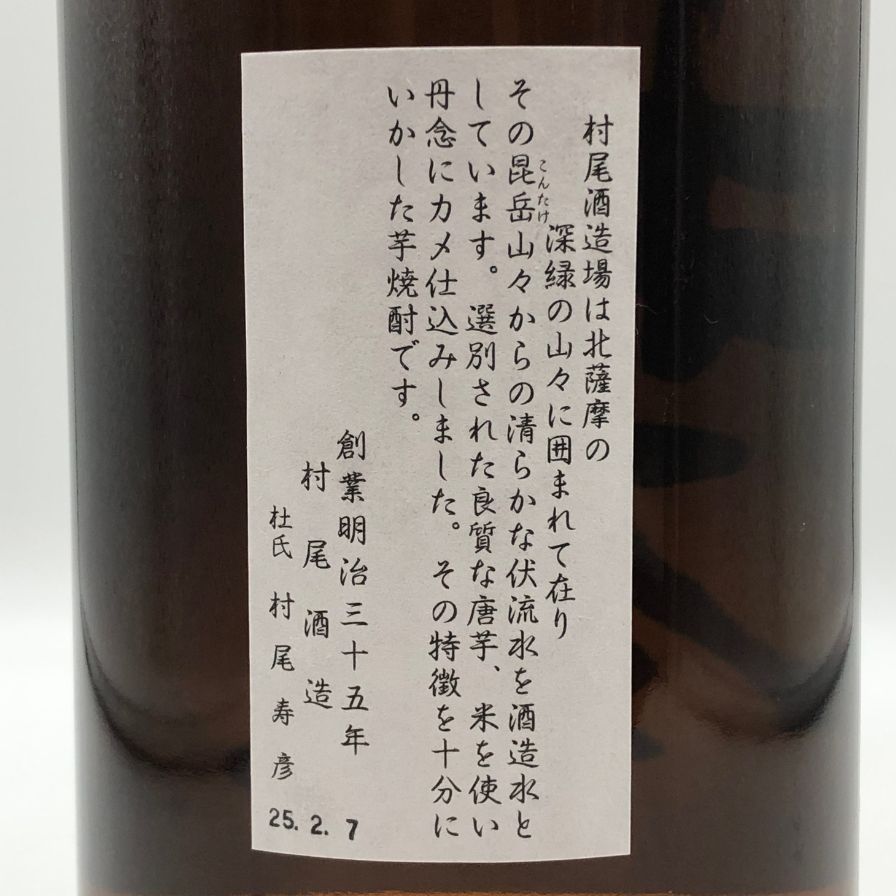 村尾酒造場は北薩摩の
深緑の山々に囲まれて在り
こんたけ
その昆岳山々からの清らかな伏流水を酒造水と
しています。選別された良質な唐芋、米を使い
丹念にカメ仕込みしました。その特徴を十分に
いかした芋焼酎です。
創業明治三十五年
村尾酒造
杜氏 村尾寿彦
25.2.7